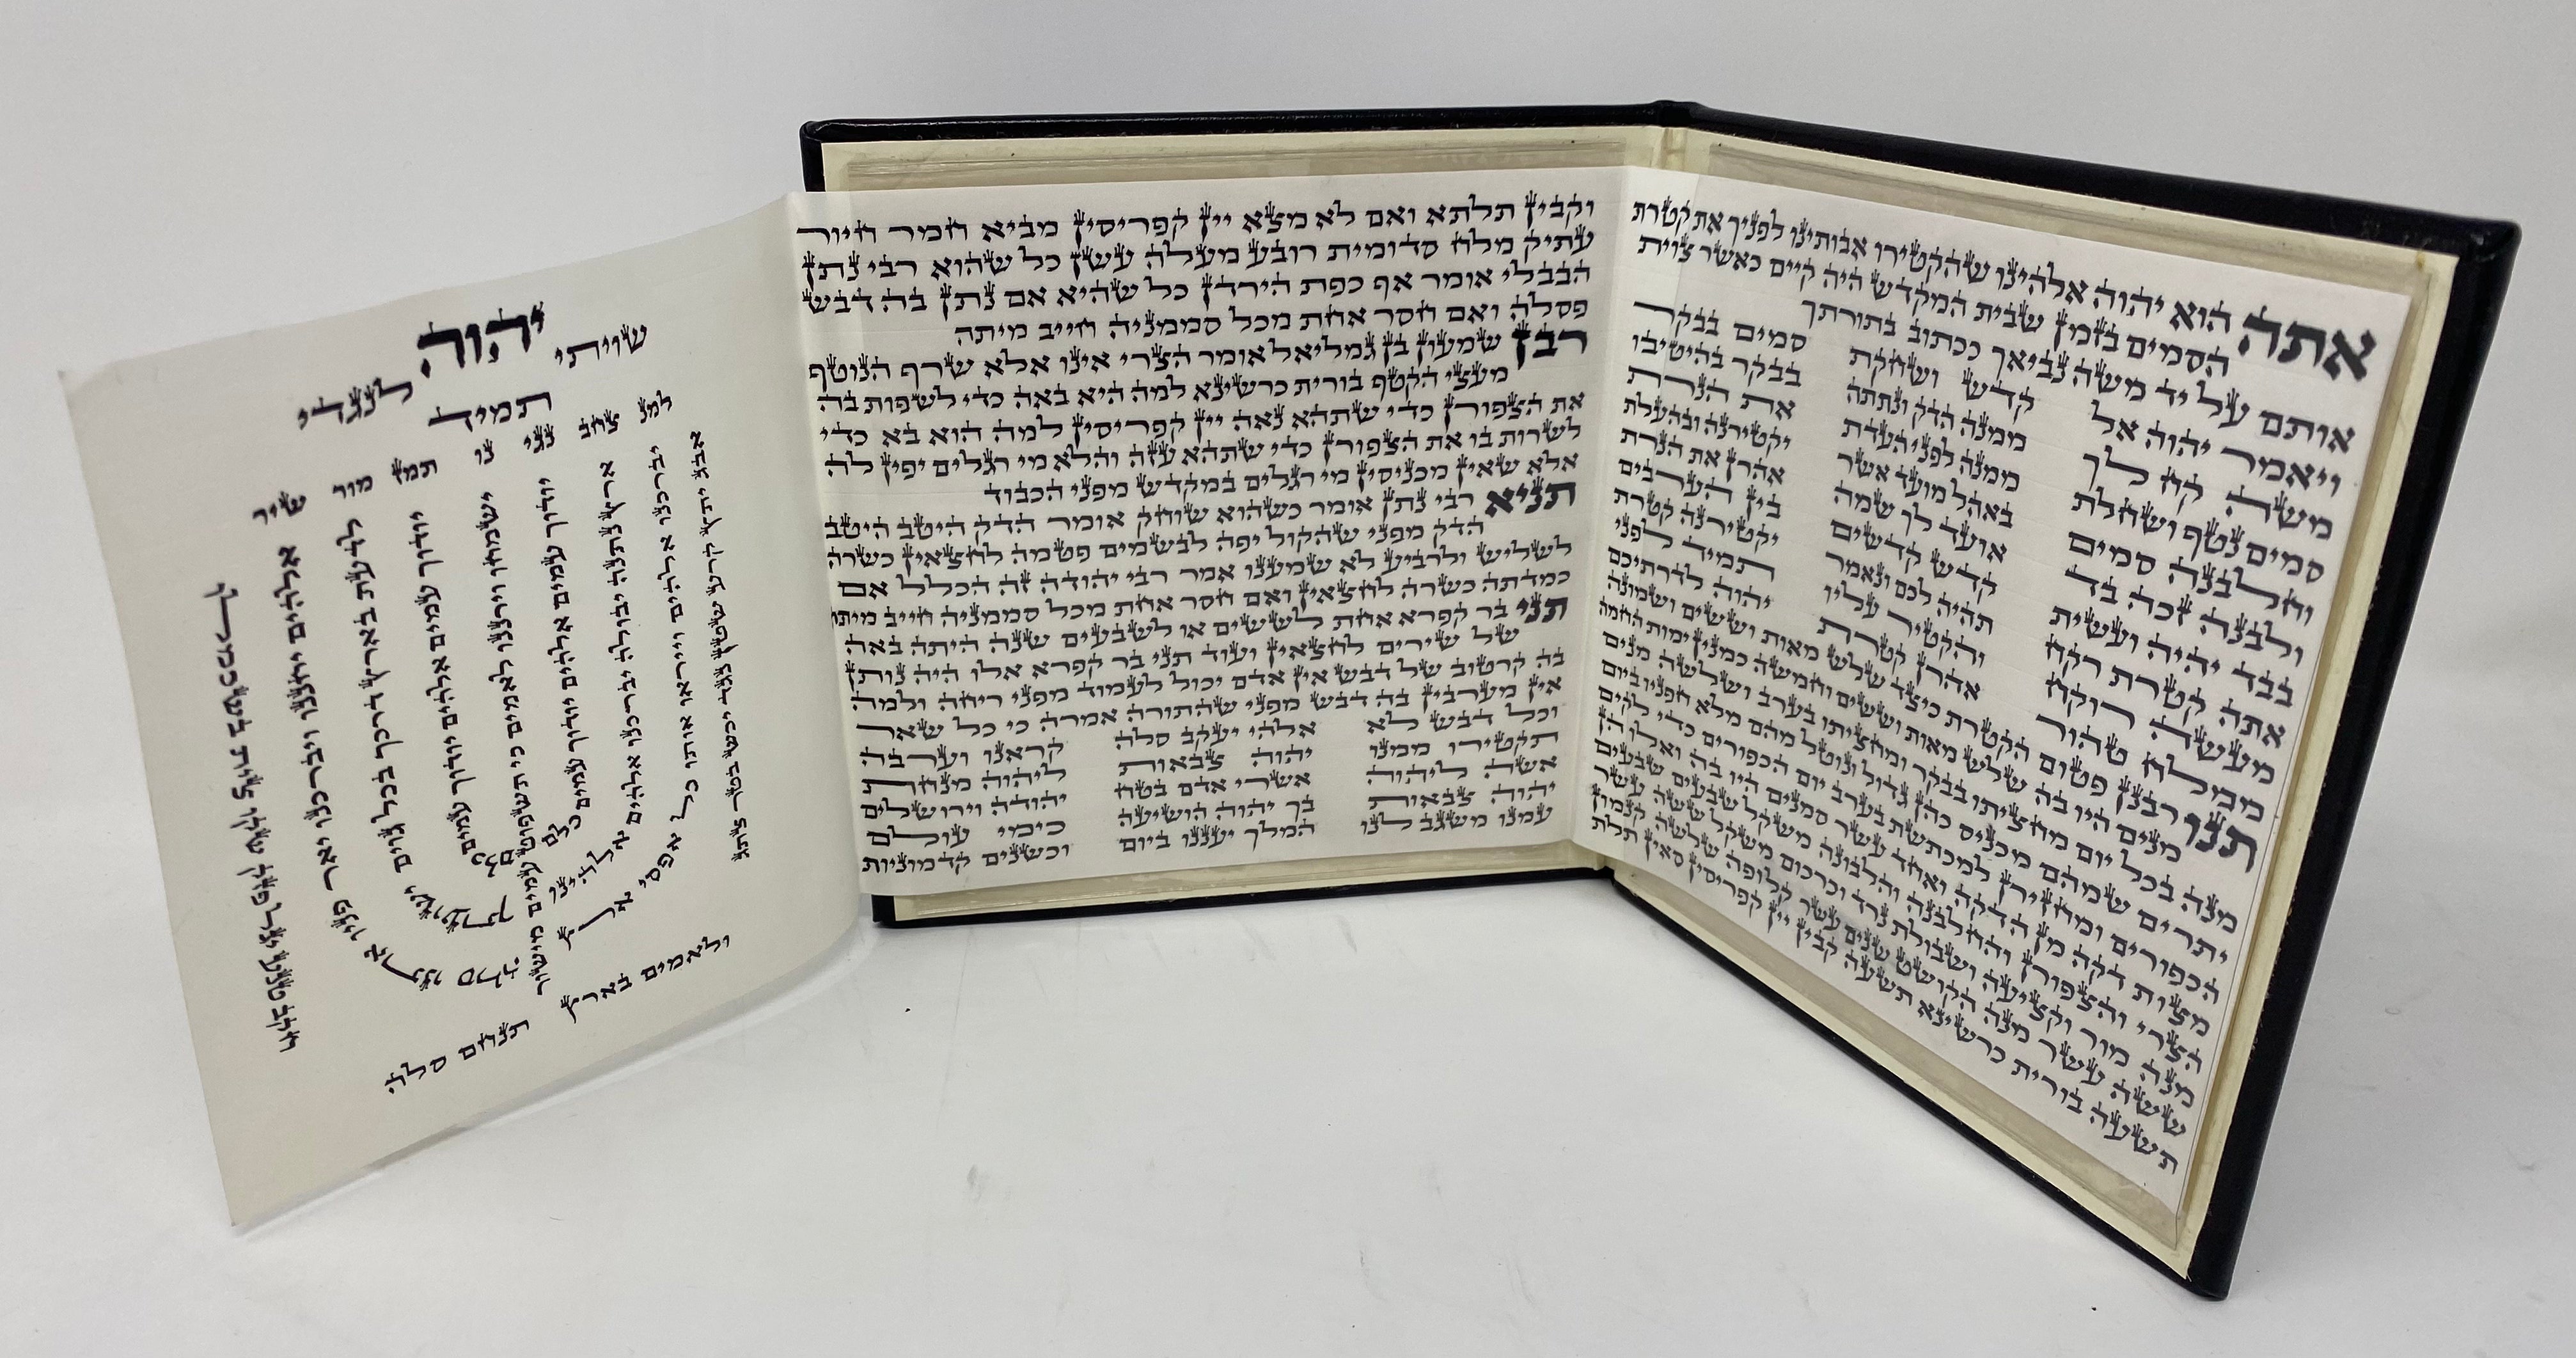 אתה הוא יהוה אלהינו שהקטירו אבותינו לפניך את קטרת
הסמים בזמן שבית המקדש היה קיים כאשר צוית
אותם על יד משה נביאך ככתוב בתורתך
ויאמר יהוה אל
משה קח לך
סמים נטף ושחלת
וחלבנה סמים
ולבנה זכה בד
בבד יהיה ועשית
אתה קטרת רקח
מעשה רוקח
ממלח טהור
קדש ושחקת
ממנה הדק ונתתה
ממנה לפני העדת
באהל מועד אשר
אועד לך שמה
קדש קדשים
תהיה לכם ונאמר
והקטיר עליו
אהרן קטרת
סמים בבקר
בבקר בהיטיבו
את הנרת
יקטירנה ובהעלת
אהרן את הנרת
בין הערבים
יקטירנה קטרת
תמיד לפני
יהוה לדרתיכם
תנו רבנן פטום הקטרת כיצד שלש מאות וששים ושמונה
מנים היו בה שלש מאות וששים וחמשה כמנין ימות החמה
מנה בכל יום מחציתו בבקר ומחציתו בערב ושלשה מנים
יתרים שמהם מכניס כהן גדול ונוטל מהם מלא חפניו ביום
הכפורים ומחזירן למכתשת בערב יום הכפורים כדי לקים
מצות דקה מן הדקה ואחד עשר סמנים היו בה ואלו הן
הצרי והצפורן והחלבנה והלבונה משקל שבעים שבעים
מנה מור וקציעה ושבולת נרד וכרכום משקל ששה עשר
ששה עשר מנה הקושט שנים עשר קלופה שלשה קנמון
תשעה בורית כרשינא תשעה קבין יין קפריסין סאין תלת
וקבין תלתא ואם לא מצא יין קפריסין מביא חמר חיור
עתיק מלח סדומית רובע מעלה עשן כל שהוא רבי נתן
הבבלי אומר אף כפת הירדן כל שהיא אם נתן בה דבש
פסלה ואם חסר אחת מכל סממניה חייב מיתה
רבן שמעון בן גמליאל אומר הצרי אינו אלא שרף הנוטף
מעצי הקטף בורית כרשינא למה היא באה כדי לשפות בה
את הצפורן כדי שתהא נאה יין קפריסין למה הוא בא כדי
לשרות בו את הצפורן כדי שתהא עזה והלא מי רגלים יפין לה
אלא שאין מכניסין מי רגלים במקדש מפני הכבוד
תניא רבי נתן אומר כשהוא שוחק אומר הדק היטב היטב
הדק מפני שהקול יפה לבשמים פטמה לחצאין כשרה
לשליש ולרביע לא שמענו אמר רבי יהודה זה הכלל אם
כמדתה כשרה לחצאין ואם חסר אחת מכל סממניה חייב מיתה
תני בר קפרא אחת לששים או לשבעים שנה היתה באה
של שירים לחצאין ועוד תני בר קפרא אלו היה נותן
בה קרטוב של דבש אין אדם יכול לעמוד מפני ריחה ולמה
אין מערבין בה דבש מפני שהתורה אמרה כי כל שאר
וכל דבש לא
תקטירו ממנו
אשה ליהוה
יהוה צבאות
עמנו משגב לנו
אלהי יעקב סלה
יהוה צבאות
אשרי אדם בטח
בך יהוה הושיעה
המלך יעננו ביום
קראנו וערבה
ליהוה מנחת
יהודה וירושלים
כימי עולם
וכשנים קדמוניות
שויתי יהוה לנגדי
תמיד
למנ צח בנגי נו תמז מור שיר
אלהים יחננו ויברכנו יאר פניו אתנו סלה
לדעת בארץ דרכך בכל גוים ישועתך
יודוך עמים אלהים יודוך עמים כלם
ישמחו וירננו לאמים כי תשפוט עמים מישור
ולאמים בארץ
תנחם סלה
יודוך עמים אלהים יודוך עמים כלם
ארץ נתנה יבולה יברכנו אלהים אלהינו
יברכנו אלהים וייראו אותו כל אפסי ארץ
אבג יתץ קרע שטן נגד יכש בטר צתג
חקב טנע יגל פזק שקו צית